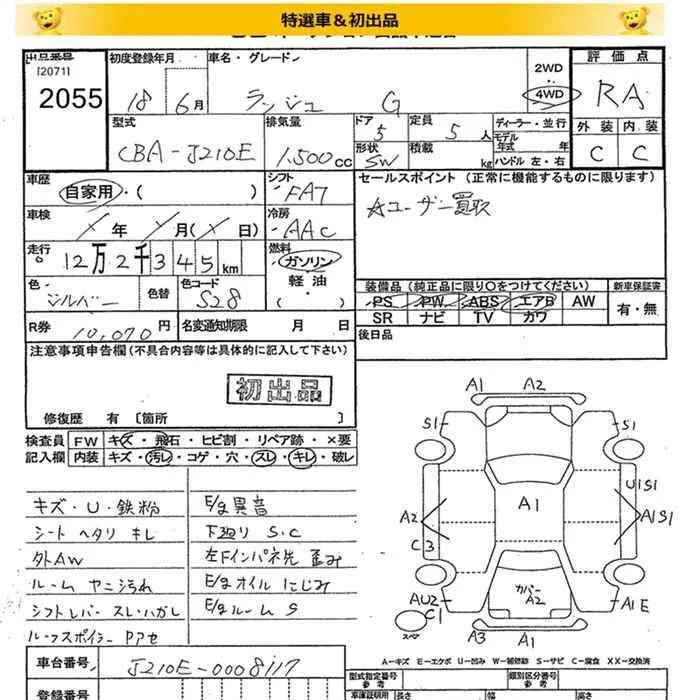 特選車＆初出品
出品番号
12071
2055
初度登録年月
18 6月
車名・グレード
ラッシュ G
2WD
4WD
評価点
RA
型式
CBA-J210E
排気量
1,500cc
ドア
5
形状
SW
定員
5人
積載
kg
ディーラー・並行
モデル
年式 年
ハンドル 左・右
外装 内装
C C
車歴
自家用・( )
シフト
FA7
セールスポイント(正常に機能するものに限ります)
☆ユーザー買取
車検
年 月( 日)
冷房
AAC
走行
12万2千345km
燃料
ガソリン
軽油
・( )
色
シルバー
色替
色コード
S28
装備品(純正品に限り○をつけてください)
新車保証書
PS PW ABS エアB AW
SR ナビ TV カワ
有・無
R券 10,070円
名変通知期限 月 日
後日品
注意事項申告欄(不具合内容等は具体的に記入して下さい)
初出品
修復歴 有 [箇所 ]
検査員
記入欄
FW キズ・飛石・ヒビ割・リペア跡・×要
内装 キズ・汚レ・コゲ・穴・スレ・キレ・破レ
キズ・U・鉄粉
シート ヘタリ キレ
外AW
ルーム ヤニ汚れ
シフトレバー スレ・ハガレ
ルーフスポイラー Pアセ
E/g異音
下廻り S・C
左Fインパネ先 歪み
E/gオイル にじみ
E/gルーム S
A1 A2
S1 S1
U1S1
A1
A2 A1S1
C3
カバー
A2
AU2 A1E
C1
スペア
A3 A1
A-キズ E-エクボ U-凹み W-補修跡 S-サビ C-腐食 XX-交換済
車台番号 J210E-0008117
登録番号
型式指定番号
参考
類別区分番号
参考
車庫証明用
長さ 幅 高さ